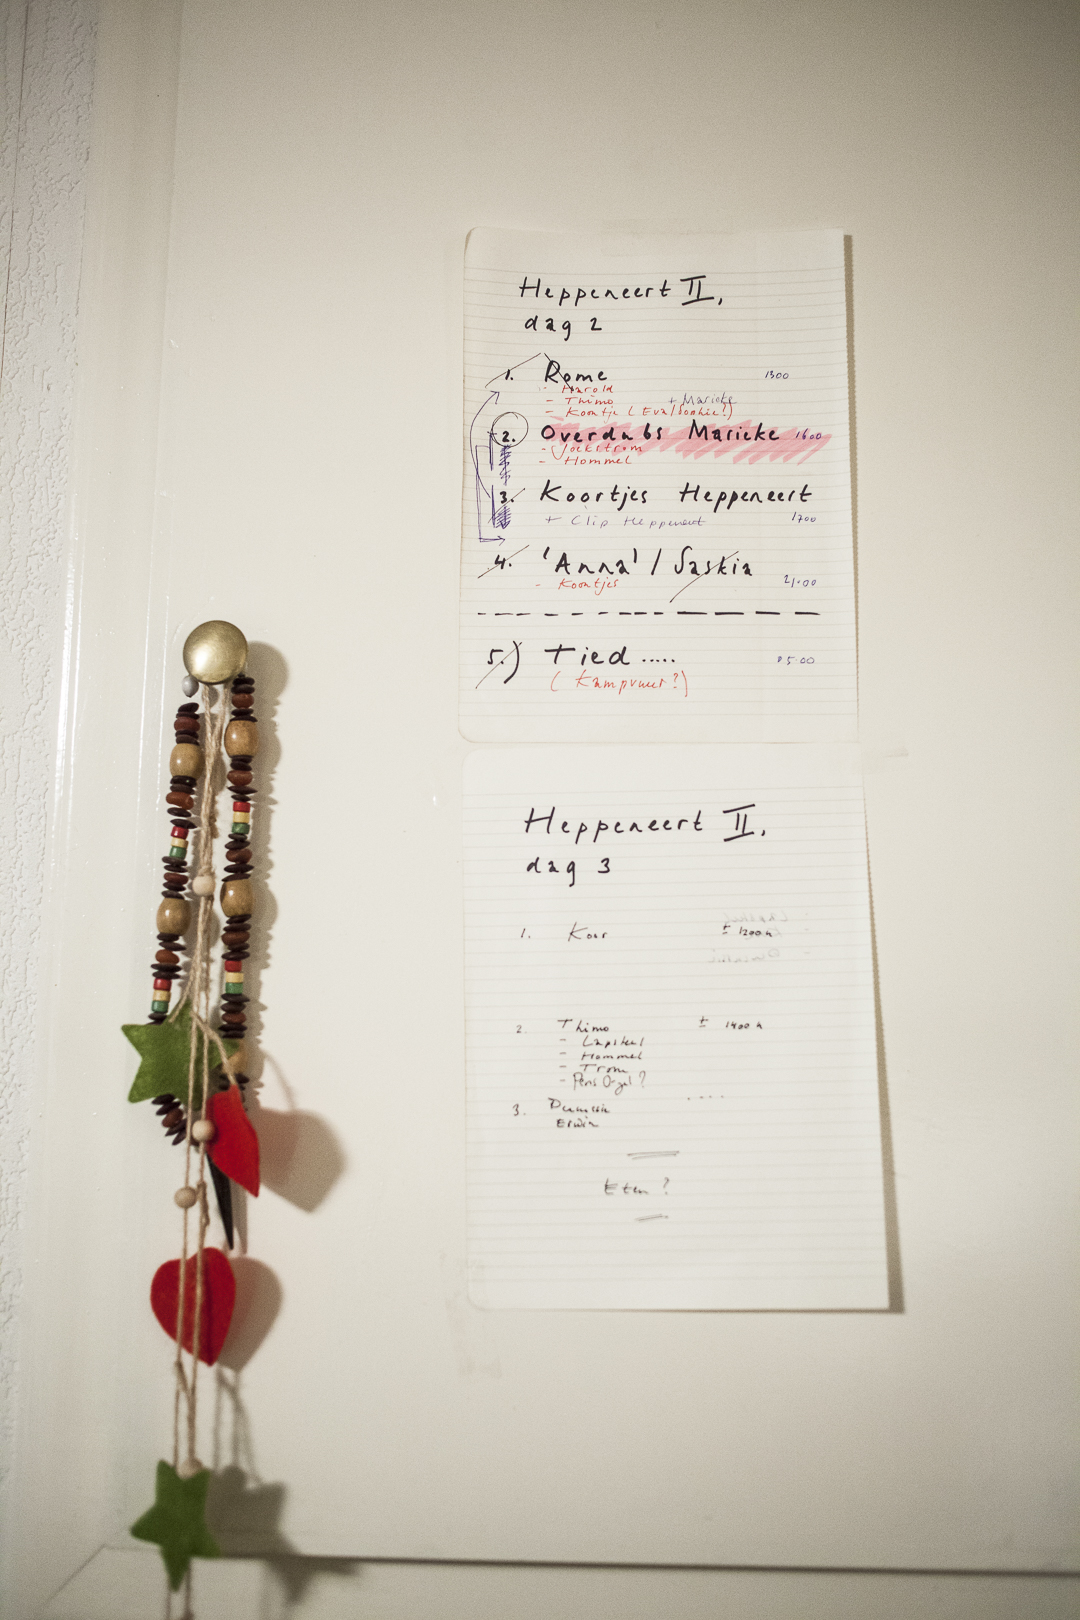 Heppeneert II,
dag 2
1. Rome 1300
- Harold
- Thimo + Marieke
- Koortje (Eva/Sophie?)
2. Overdubs Marieke 1600
- Jockstrom
- Hommel
3. Koortjes Heppeneert
+ Clip Heppeneert 1700
4. 'Anna' / Saskia
- Koortjes 21.00
5.) Tied ..... 05.00
(Kampvuur?)
Heppeneert II,
dag 3
1. Koor ± 1200 h
2. Thimo ± 1400 h
- Lapsteel
- Hommel
- Trom
- Pens Orgel?
3. ....
Erwin
Eten?